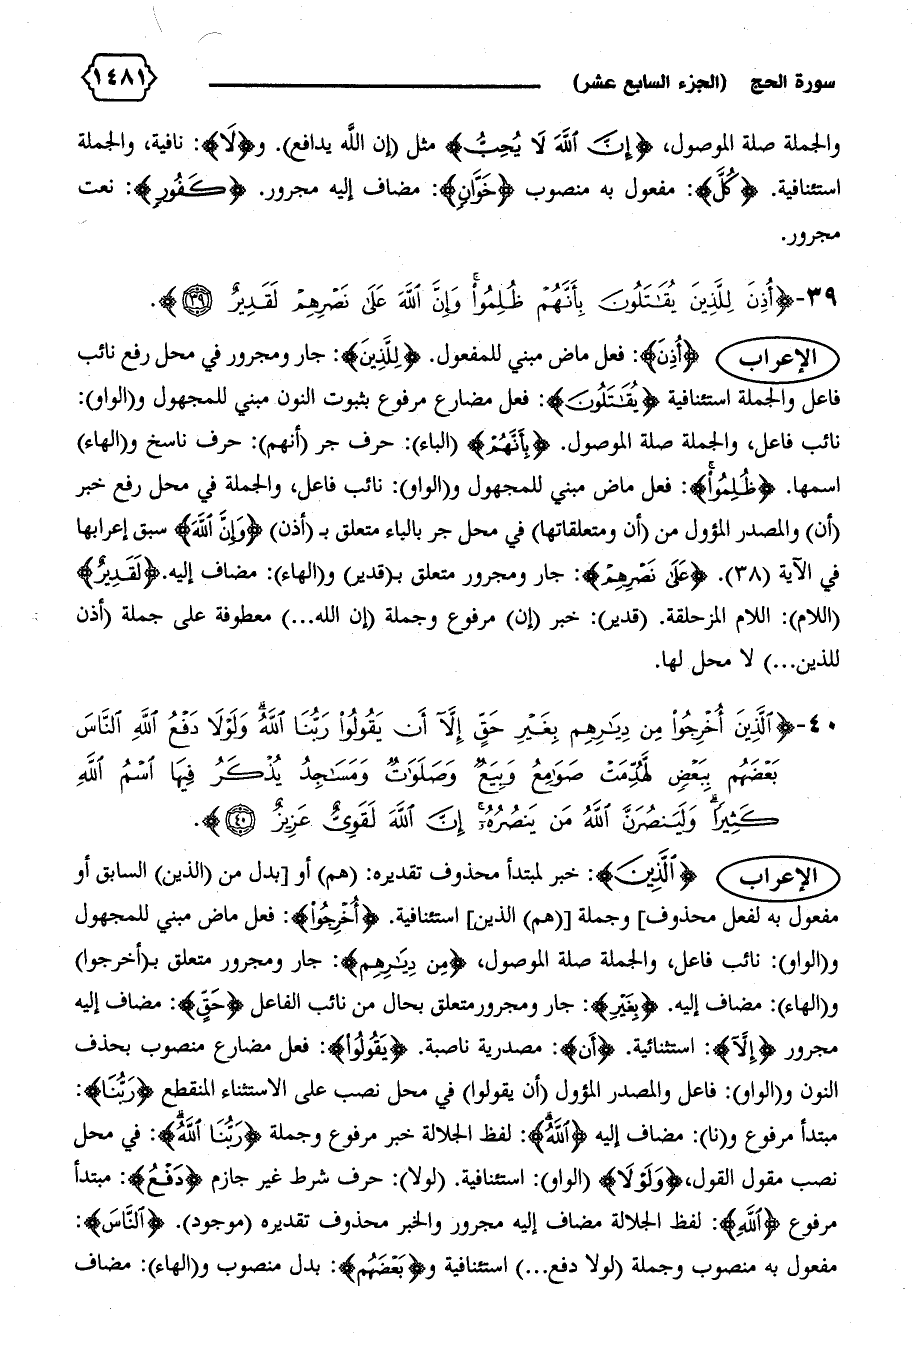 سورة الحج (الجزء السابع عشر) ١٤٨١
والجملة صلة الموصول، ﴿إِنَّ ٱللَّهَ لَا يُحِبُّ﴾ مثل (إن اللَّه يدافع). و﴿لَا﴾: نافية، والجملة
استئنافية. ﴿كُلَّ﴾: مفعول به منصوب ﴿خَوَّانٍ﴾: مضاف إليه مجرور. ﴿كَفُورٍ﴾: نعت
مجرور.
٣٩-﴿أُذِنَ لِلَّذِينَ يُقَٰتَلُونَ بِأَنَّهُمْ ظُلِمُوا۟ۚ وَإِنَّ ٱللَّهَ عَلَىٰ نَصْرِهِمْ لَقَدِيرٌ ٣٩﴾.
الإعراب ﴿أُذِنَ﴾: فعل ماض مبني للمفعول. ﴿لِلَّذِينَ﴾: جار ومجرور في محل رفع نائب
فاعل والجملة استئنافية ﴿يُقَٰتَلُونَ﴾: فعل مضارع مرفوع بثبوت النون مبني للمجهول و(الواو):
نائب فاعل، والجملة صلة الموصول. ﴿بِأَنَّهُمْ﴾ (الباء): حرف جر (أنهم): حرف ناسخ و(الهاء)
اسمها. ﴿ظُلِمُوا۟ۚ﴾: فعل ماض مبني للمجهول و(الواو): نائب فاعل، والجملة في محل رفع خبر
(أن) والمصدر المؤول من (أن ومتعلقاتها) في محل جر بالباء متعلق بـ (أذن) ﴿وَإِنَّ ٱللَّهَ﴾ سبق إعرابها
في الآية (٣٨). ﴿عَلَىٰ نَصْرِهِمْ﴾: جار ومجرور متعلق بـ(قدير) و(الهاء): مضاف إليه.﴿لَقَدِيرٌ﴾
(اللام): اللام المزحلقة. (قدير): خبر (إن) مرفوع وجملة (إن الله...) معطوفة على جملة (أذن
للذين...) لا محل لها.
٤٠-﴿ٱلَّذِينَ أُخْرِجُوا۟ مِن دِيَٰرِهِم بِغَيْرِ حَقٍّ إِلَّآ أَن يَقُولُوا۟ رَبُّنَا ٱللَّهُۗ وَلَوْلَا دَفْعُ ٱللَّهِ ٱلنَّاسَ
بَعْضَهُم بِبَعْضٍ لَّهُدِّمَتْ صَوَٰمِعُ وَبِيَعٌ وَصَلَوَٰتٌ وَمَسَٰجِدُ يُذْكَرُ فِيهَا ٱسْمُ ٱللَّهِ
كَثِيرًاۗ وَلَيَنصُرَنَّ ٱللَّهُ مَن يَنصُرُهُۥٓۚ إِنَّ ٱللَّهَ لَقَوِىٌّ عَزِيزٌ ٤٠﴾.
الإعراب ﴿ٱلَّذِينَ﴾: خبر لمبتدأ محذوف تقديره: (هم) أو [بدل من (الذين) السابق أو
مفعول به لفعل محذوف] وجملة [(هم) الذين] استئنافية. ﴿أُخْرِجُوا۟﴾: فعل ماض مبني للمجهول
و(الواو): نائب فاعل، والجملة صلة الموصول، ﴿مِن دِيَٰرِهِم﴾: جار ومجرور متعلق بـ(أخرجوا)
و(الهاء): مضاف إليه. ﴿بِغَيْرِ﴾: جار ومجرورمتعلق بحال من نائب الفاعل ﴿حَقٍّ﴾: مضاف إليه
مجرور ﴿إِلَّآ﴾: استثنائية. ﴿أَن﴾: مصدرية ناصبة. ﴿يَقُولُوا۟﴾: فعل مضارع منصوب بحذف
النون و(الواو): فاعل والمصدر المؤول (أن يقولوا) في محل نصب على الاستثناء المنقطع ﴿رَبُّنَا﴾:
مبتدأ مرفوع و(نا): مضاف إليه ﴿ٱللَّهُۗ﴾: لفظ الجلالة خبر مرفوع وجملة ﴿رَبُّنَا ٱللَّهُۗ﴾: في محل
نصب مقول القول،﴿وَلَوْلَا﴾ (الواو): استئنافية. (لولا): حرف شرط غير جازم ﴿دَفْعُ﴾: مبتدأ
مرفوع ﴿ٱللَّهِ﴾: لفظ الجلالة مضاف إليه مجرور والخبر محذوف تقديره (موجود). ﴿ٱلنَّاسَ﴾:
مفعول به منصوب وجملة (لولا دفع...) استئنافية و﴿بَعْضَهُم﴾: بدل منصوب و(الهاء): مضاف